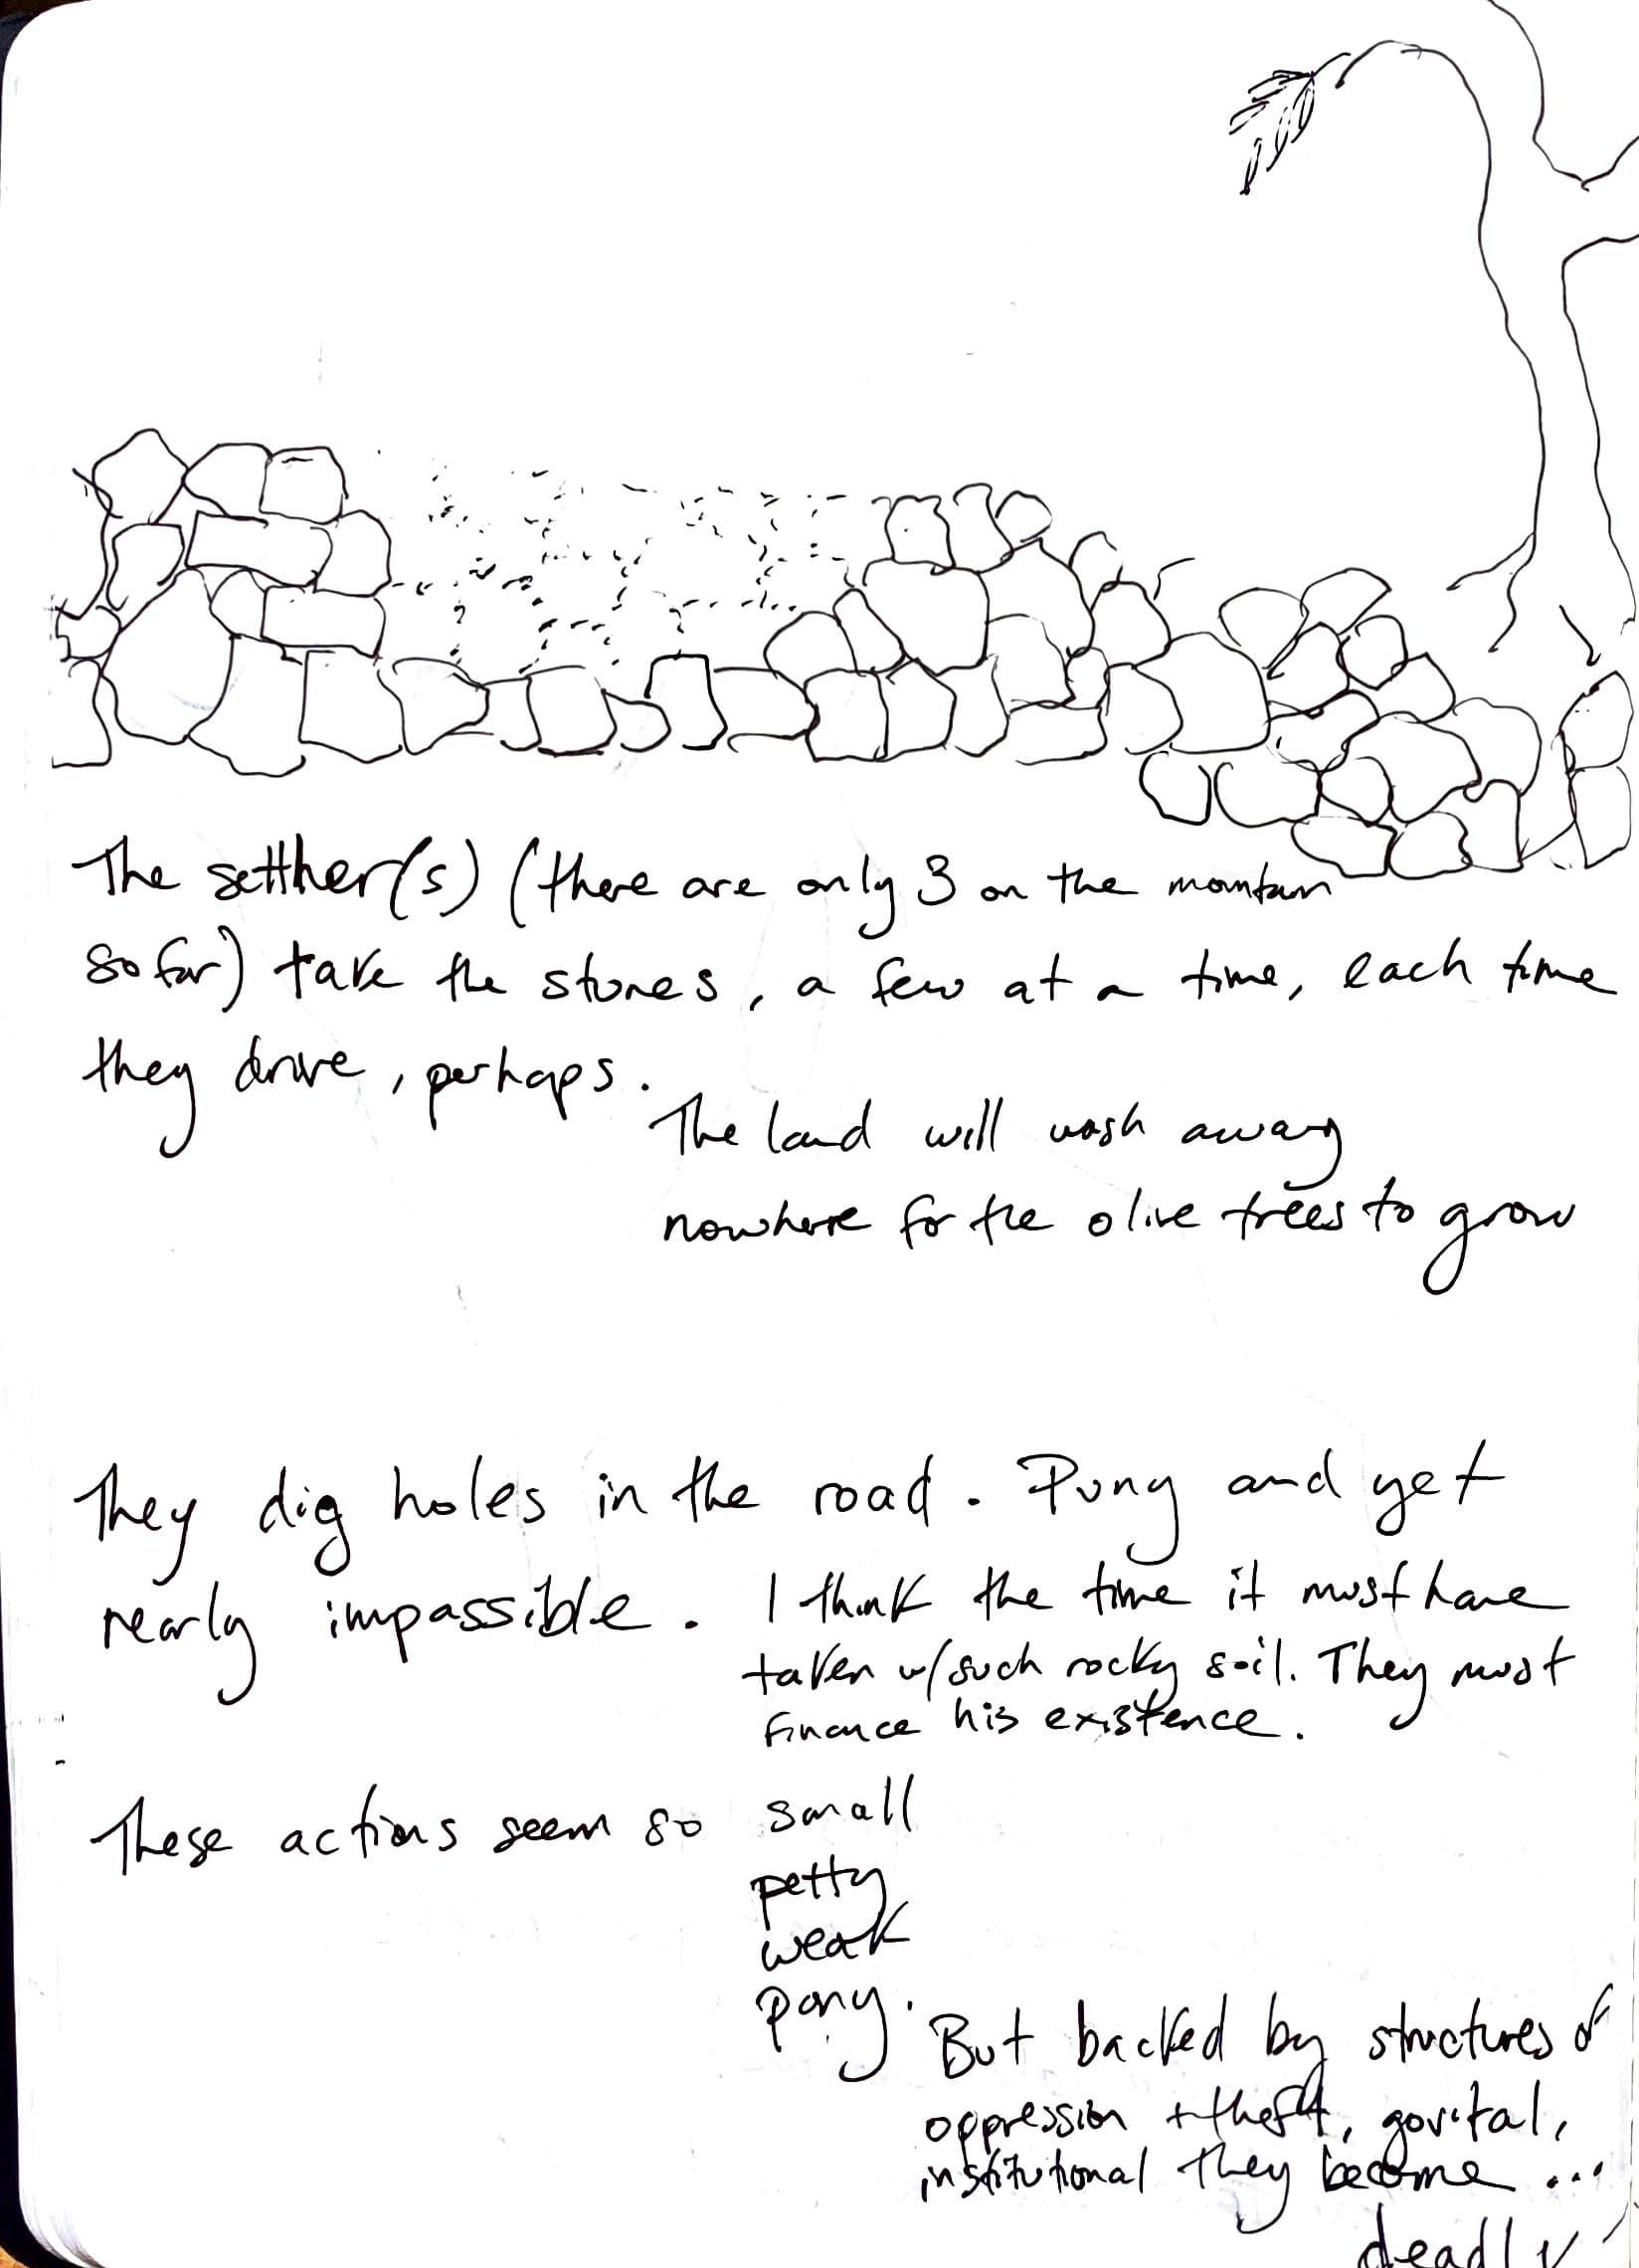 The setther(s) (there are only 3 on the mountain
so far) take the stones, a few at a time, each time
they drive, perhaps.
The land will wash away
nowhere for the olive trees to grow
They dig holes in the road. Puny and yet
nearly impassible. I think the time it must have
taken w/ such rocky soil. They must
finance his existence.
These actions seem so small
petty
weak
puny.
But backed by structures of
oppression + theft, gov'tal,
institutional they become ...
deadly